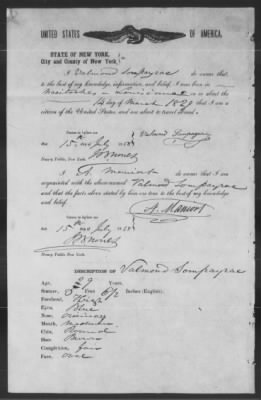 UNITED STATES OF AMERICA.
STATE OF NEW YORK,
City and County of New York,
I Valmond Sompayrac do swear that
to the best of my knowledge, information, and belief, I was born in
Natchitoches Louisiana on or about the
14 day of March 1829 that I am a
citizen of the United States and am about to travel abroad.
Sworn to before me
this 15th day July 1858
Valmond Sompayrac
Notary Public, New York.
I A. do swear that I am
acquainted with the above-named Valmond Sompayrac
and that the facts above stated by him are true to the best of my knowledge
and belief.
Sworn to before me
this 15th day July 1858
Notary Public New York.
DESCRIPTION OF Valmond Sompayrac
Age, 29 Years.
Stature, 5 Feet 6½ Inches (English).
Forehead, High
Eyes, Blue
Nose, ordinary
Mouth,
Chin, Round
Hair, Brown
Complexion, fair
Face, oval